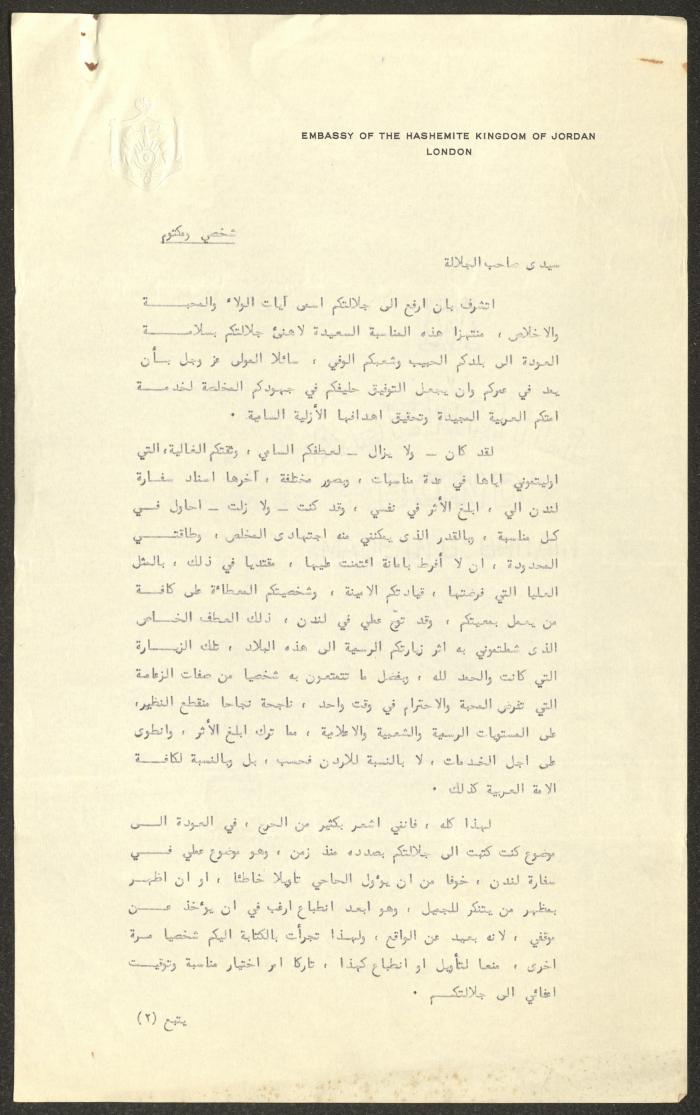 EMBASSY OF THE HASHEMITE KINGDOM OF JORDAN
LONDON
شخصي ومكتوم
سيدى صاحب الجلالة
اتشرف بان ارفع الى جلالتكم اسمى آيات الولاء والمحبـــة
والاخلاص ، منتهزا هذه المناسبة السعيدة لاهنئ جلالتكم بسلامـــة
العودة الى بلدكم الحبيب وشعبكم الوفي ، سائلا المولى عز وجل بـــأن
يمد في عمركم وان يجعـل التوفيق حليفكم في جهودكم المخلصة لخدمـــة
امتكم العربية المجيدة وتحقيق اهدافها الأزلية السامية .
لقد كان ــ ولا يزال ــ لعطفكم السامي ، وثقتكم الغالية ، التي
اوليتموني اياها في عدة مناسبات ، وبصور مختلفة ، آخرها اسناد سفـارة
لندن الي ، ابلغ الأثر في نفسي ، وقد كنت ــ ولا زلت ــ احاول فـــي
كـل مناسبة ، وبالقدر الذى يمكنني منه اجتهادى المخلص ، وطاقتـــي
المحدودة ، ان لا أفرط بامانة ائتمنت عليها ، مقتديا في ذلك ، بالمثل
العليا التي فرضتها ، قيادتكم الامينة ، وشخصيتكم المعطاءة على كافـــة
من يعمـل بمعيتكم ، وقد توّج عملي في لندن ، ذلك العطف الخـــاص
الذى شملتموني به اثر زيارتكم الرسمية الى هذه البلاد ، تلك الزيـــارة
التي كانت والحمد لله ، وبفضل ما تتمتعون به شخصيا من صفات الزعامة
التي تفرض المحبة والاحترام في وقت واحد ، ناجحة نجاحا منقطع النظير،
على المستويات الرسمية والشعبية والاعلامية ، مما ترك ابلغ الأثر ، وانطوى
على اجل الخدمات ، لا بالنسبة للاردن فحسب ، بل وبالنسبة لكافـــة
الامة العربية كذلك .
لهذا كله ، فانني اشعر بكثير من الحرج ، في العودة الـــى
موضوع كنت كتبت الى جلالتكم بصدده منذ زمن ، وهو موضوع عملي فـــي
سفارة لندن ، خوفا من ان يؤول الحاحي تأويلا خاطئا ، او ان اظهـــر
بمظهر من يتنكر للجميل ، وهو ابعد انطباع ارغب في ان يؤخذ عـــن
موقفي ، لانه بعيد عن الواقع ، ولهـذا تجرأت بالكتابة اليكم شخصيا مـرة
اخرى ، منعا لتأويل او انطباع كهذا ، تاركا امر اختيار مناسبة وتوقيـــت
اعفائي الى جلالتكـــم .
يتبع (٢)